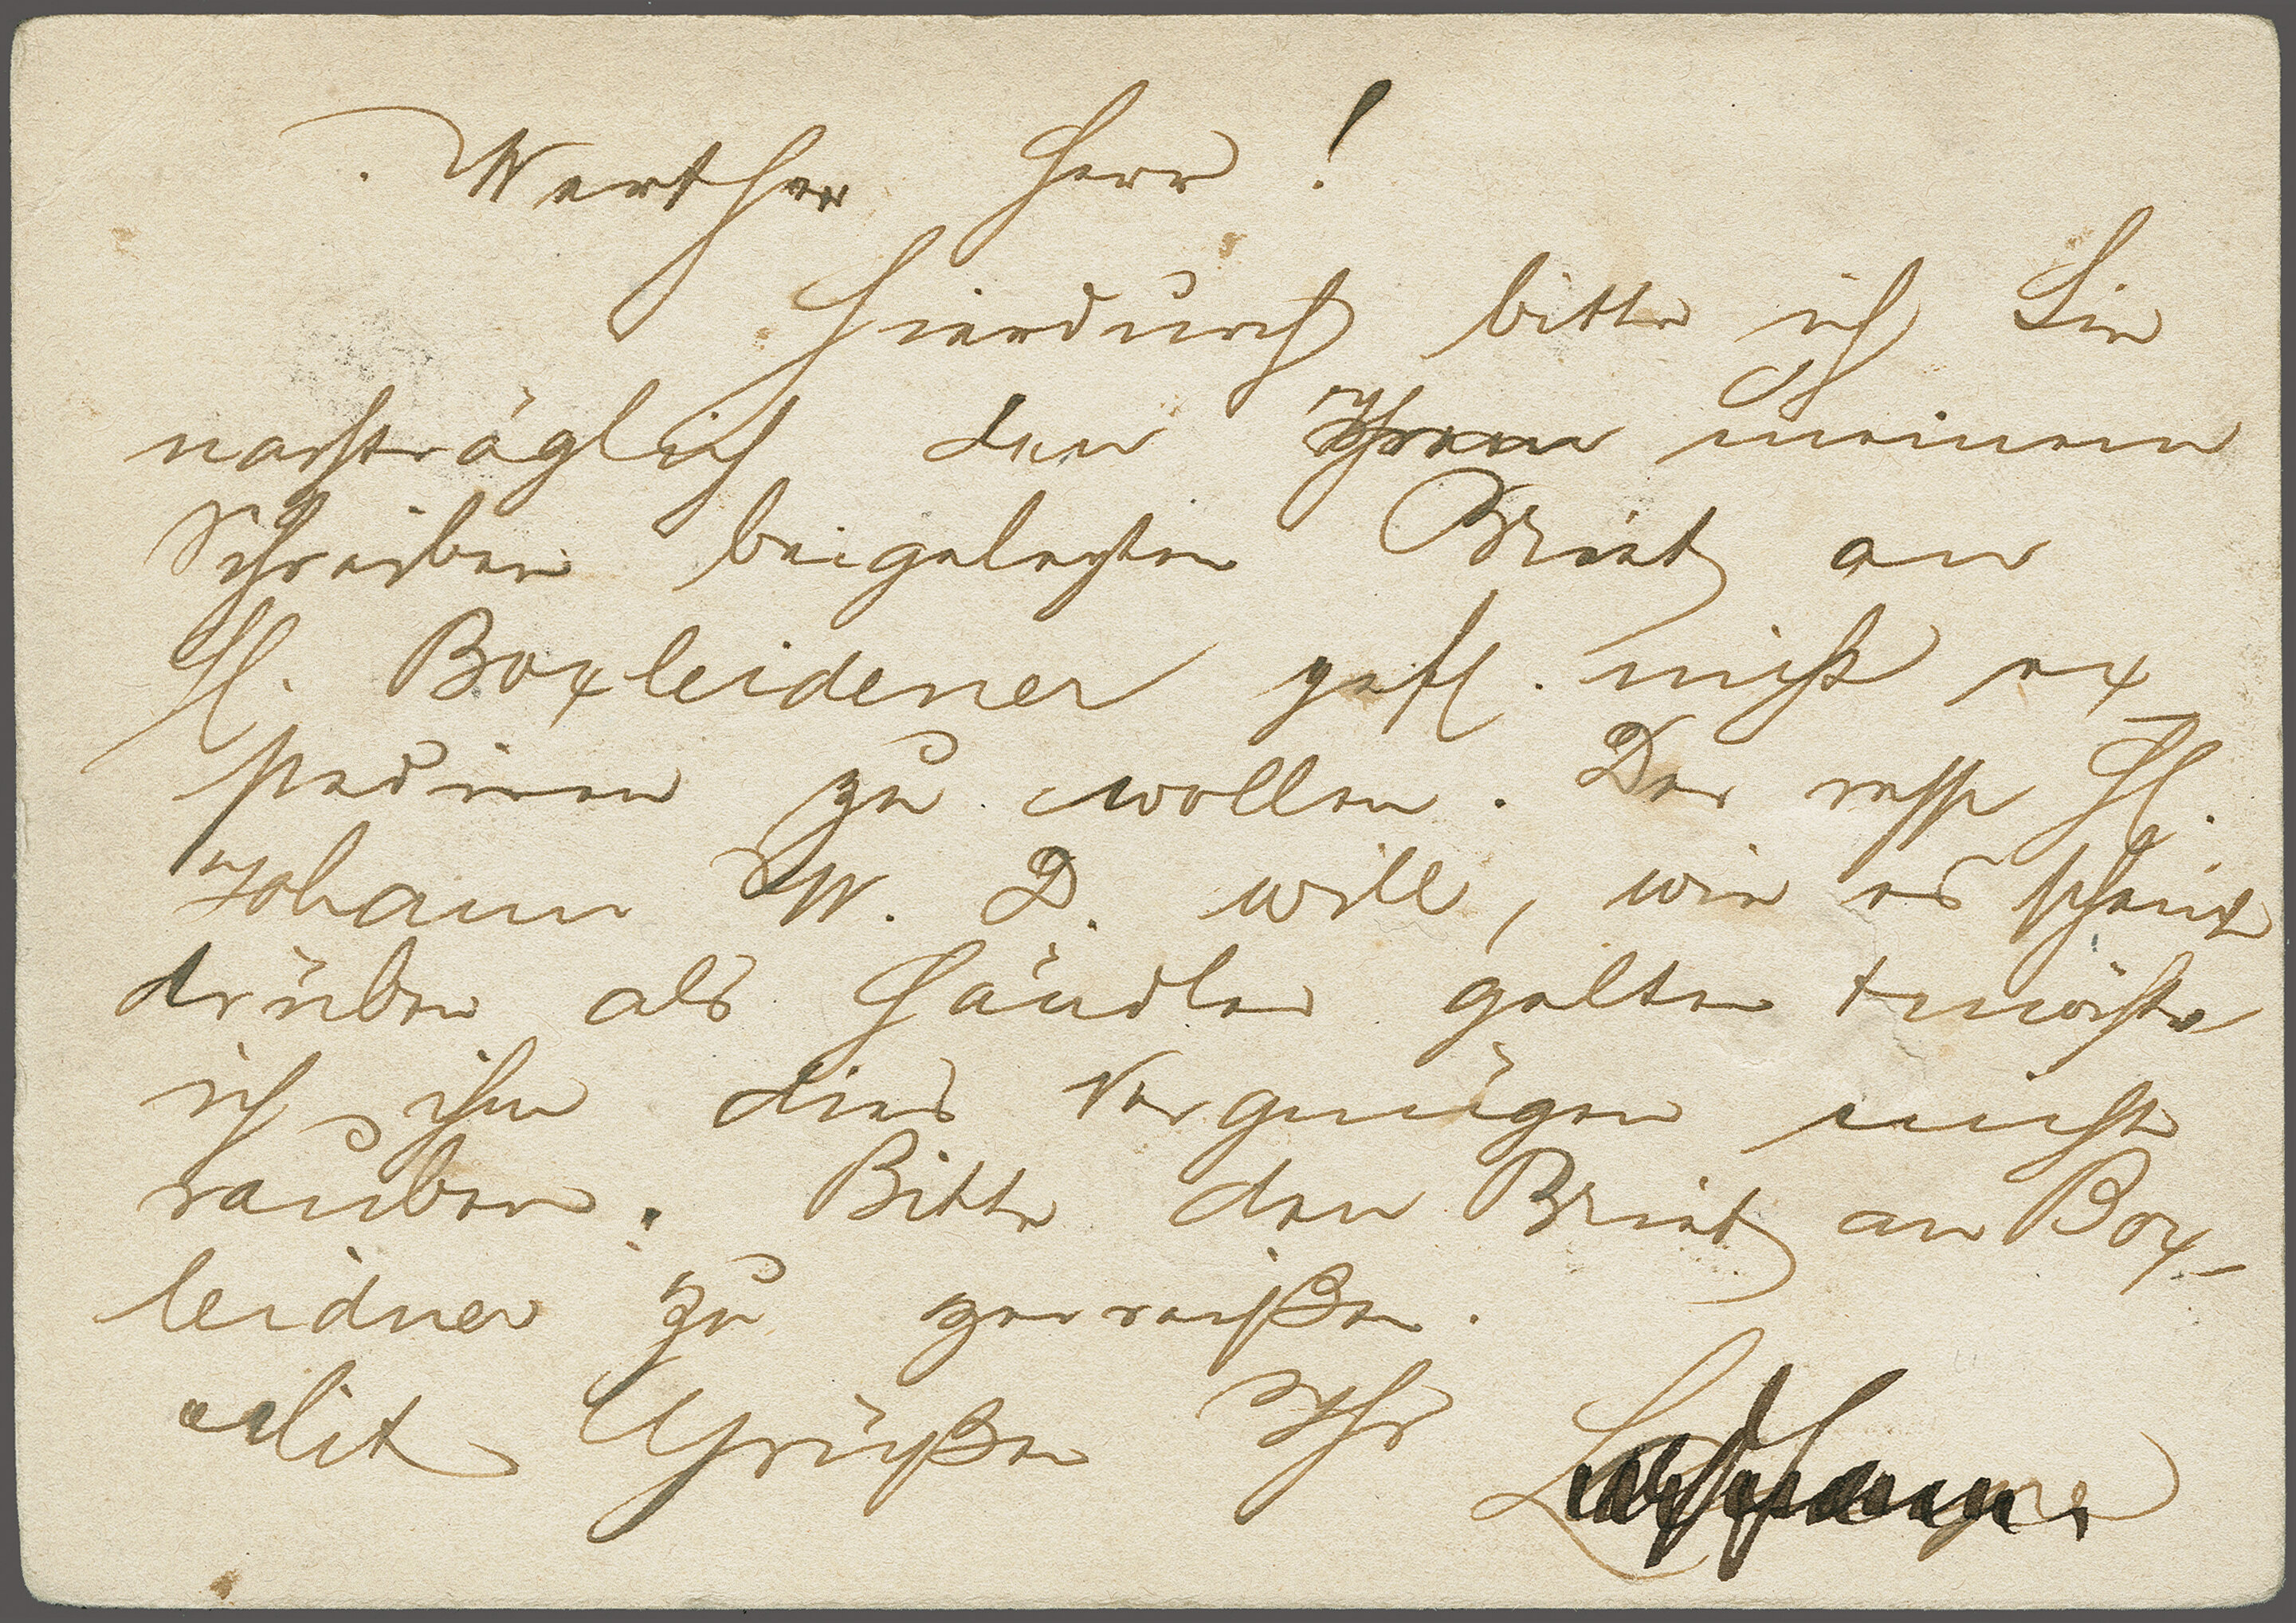 Werther Herr!
Hierdurch bitte ich Sie
nachträglich den Ihrem meinem
Schreiben beigelegten Brief an
H. Boxleidener gefl. nicht ex-
pediren zu wollen. Der resp H.
Johann W. D. will, wie es scheint
drüben als Händler gelten + möchte
ich ihm dies Vergnügen nicht
rauben. Bitte den Brief an Box-
leidner zu zerreißen.
Mit Grüßen Ihr